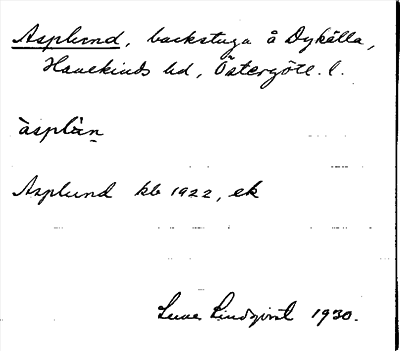 Asplund, backstuga å Dykälla,
Hanekinds hd, Östergötl. l.
àsplàn
Asplund kb 1922, ek
Sune Lindqvist 1930.